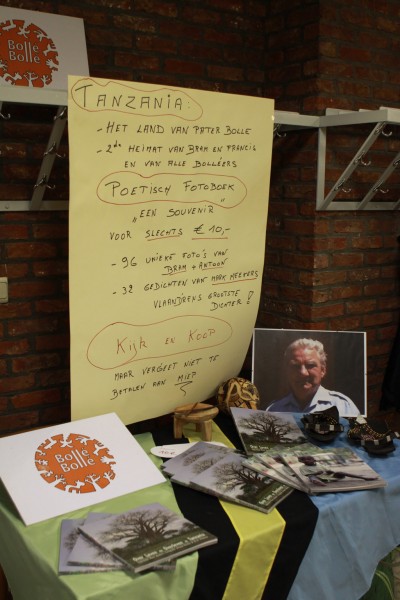 Bolle
Bolle
TANZANIA:
- HET LAND VAN PATER BOLLE
- 2de HEIMAT VAN BRAM EN FRANCIS
EN VAN ALLE BOLLEËRS
POËTISCH FOTOBOEK
"EEN SOUVENIR"
VOOR SLECHTS € 10,-
- 96 UNIEKE FOTO'S VAN
BRAM + ANTOON
- 32 GEDICHTEN VAN MARK MEEKERS
VLAANDREXS GROOTSTE
DICHTER!
KIJK EN KOOP
MAAR VERGEET NIET TE
BETALEN AAN MIEP
Bolle
Bolle